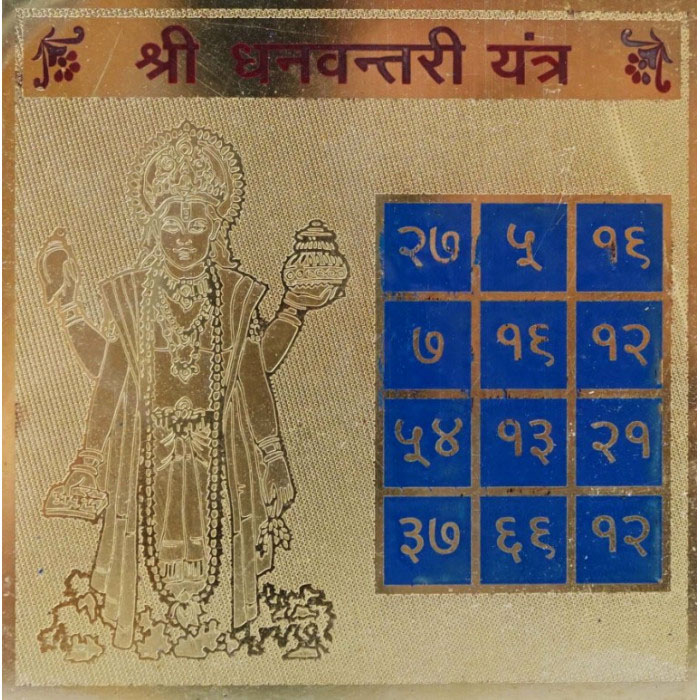 श्री धनवन्तरी यंत्र
२७ ५ १६
७ १६ १२
५४ १३ २१
३७ ६६ १२